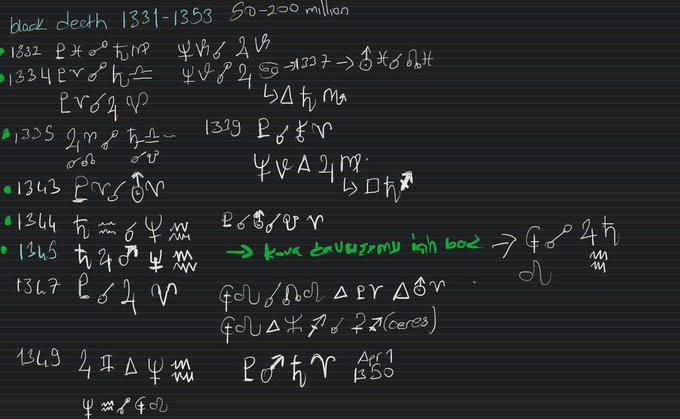 black death 1331-1353 50-200 million
1332 ♇ ♓ ☍ ♄ ♍ ♆ ♑ ☌ ♃ ♑
1334 ♇ ♈ ☍ ♄ ♎ ♆ ♑ ☍ ♃ ♋ → 1337 → ⛢ ♓ ☌ ☊ ♓
♇ ♈ ☌ ♃ ♈ ↳ △ ♄ ♏
1335 ♃ ♈ ☍ ♄ ♎ 1339 ♇ ☌ ⚷ ♈
☌ ☊ ☌ ☋
♆ △ ♃ ♍
1343 ♇ ♈ ☌ ⛢ ♈ ↳ □ ♄ ♐
1344 ♄ ♒ ☌ ♆ ♒ ♇ ☌ ⛢ ☌ ☋ ♈
1345 ♄ ♃ ♂ ♆ ♒ → → ☍ ♃ ♄
♌ ♒
1347 ♇ ☌ ♃ ♈ ♌ ☌ ☊ ♌ △ ♇ ♈ △ ⛢ ♈
♌ △ ♐ ☌ ♐ (ceres)
1349 ♃ ♊ △ ♆ ♒ ♇ ♂ ♄ ♈ Apr 1
1350
♆ ♒ ☍ ♌